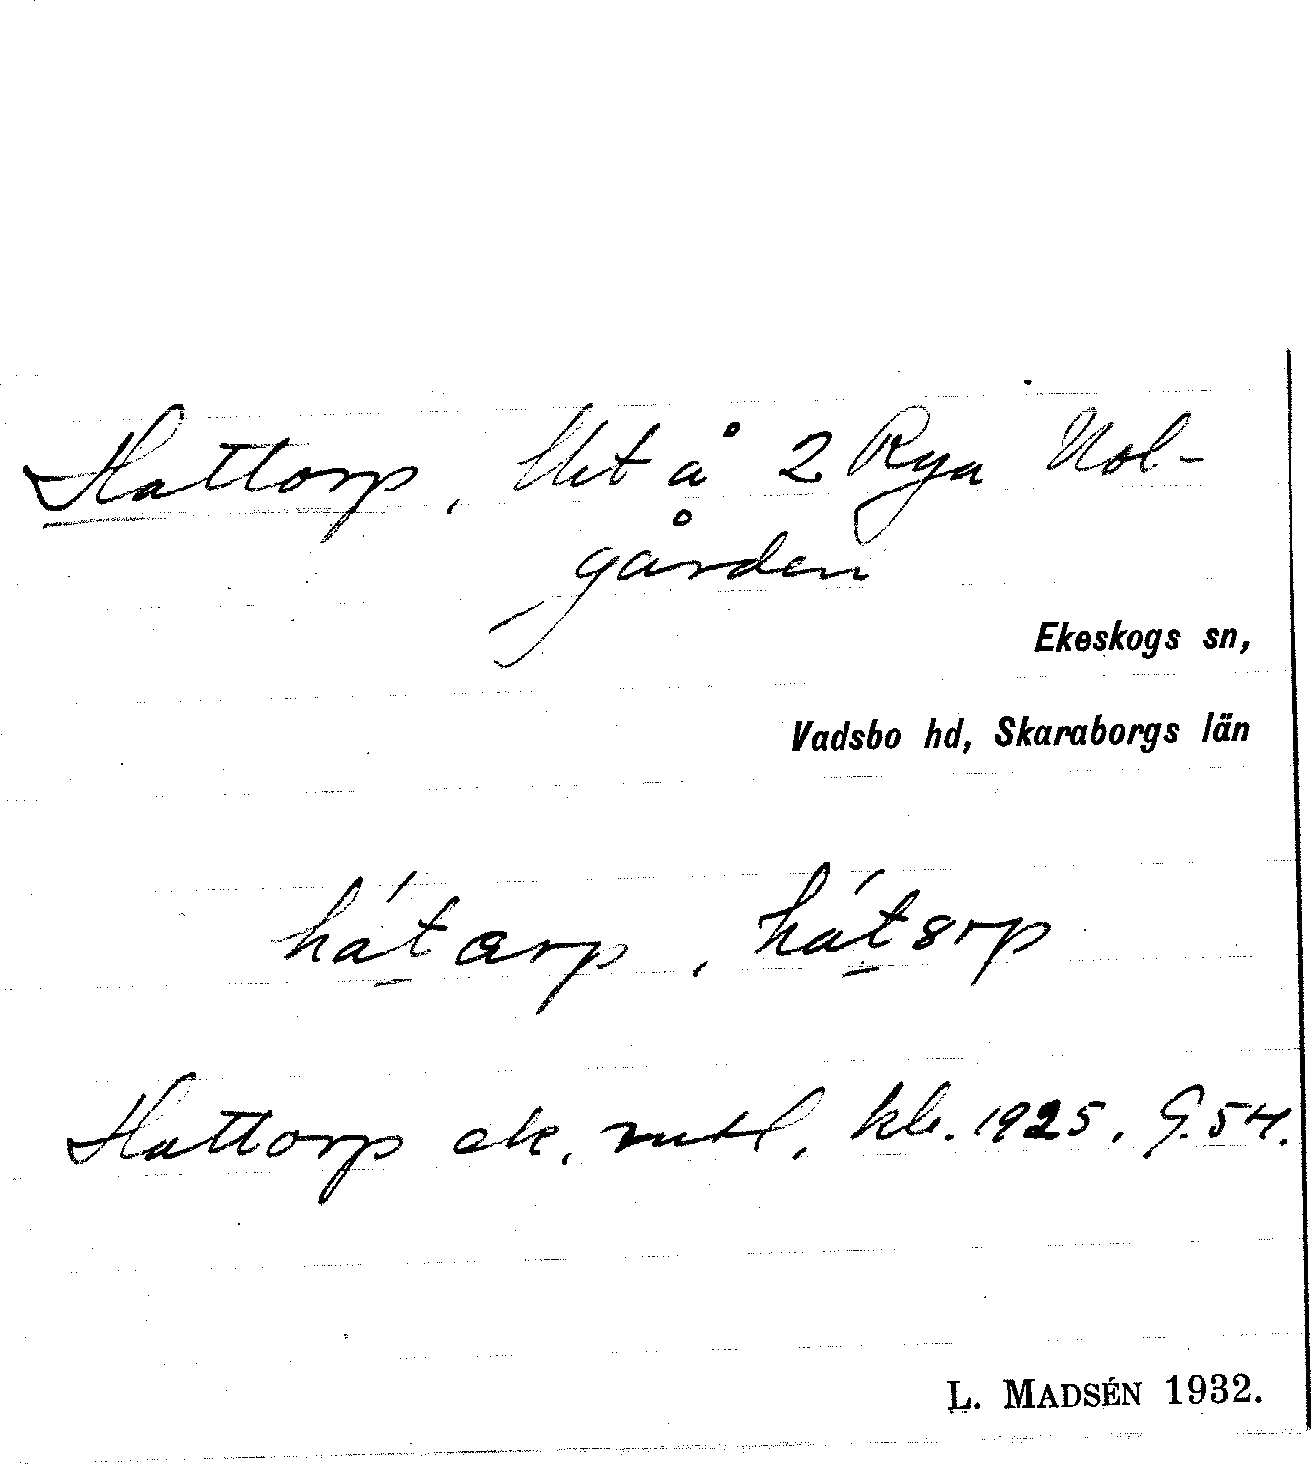 Hattorp, lht å 2 Rya Nol-
gården
Ekeskogs sn,
Vadsbo hd, Skaraborgs län
hátarp, hátsrp
Hattorp ek. kb. 1925. G. 54.
L. MADSÉN 1932.